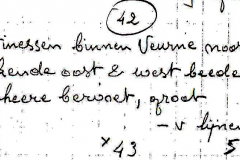 42
inessen binnen Veurne noor
kende oost & west beede
heere beruoet, groot
- v lijnen
x 43 5